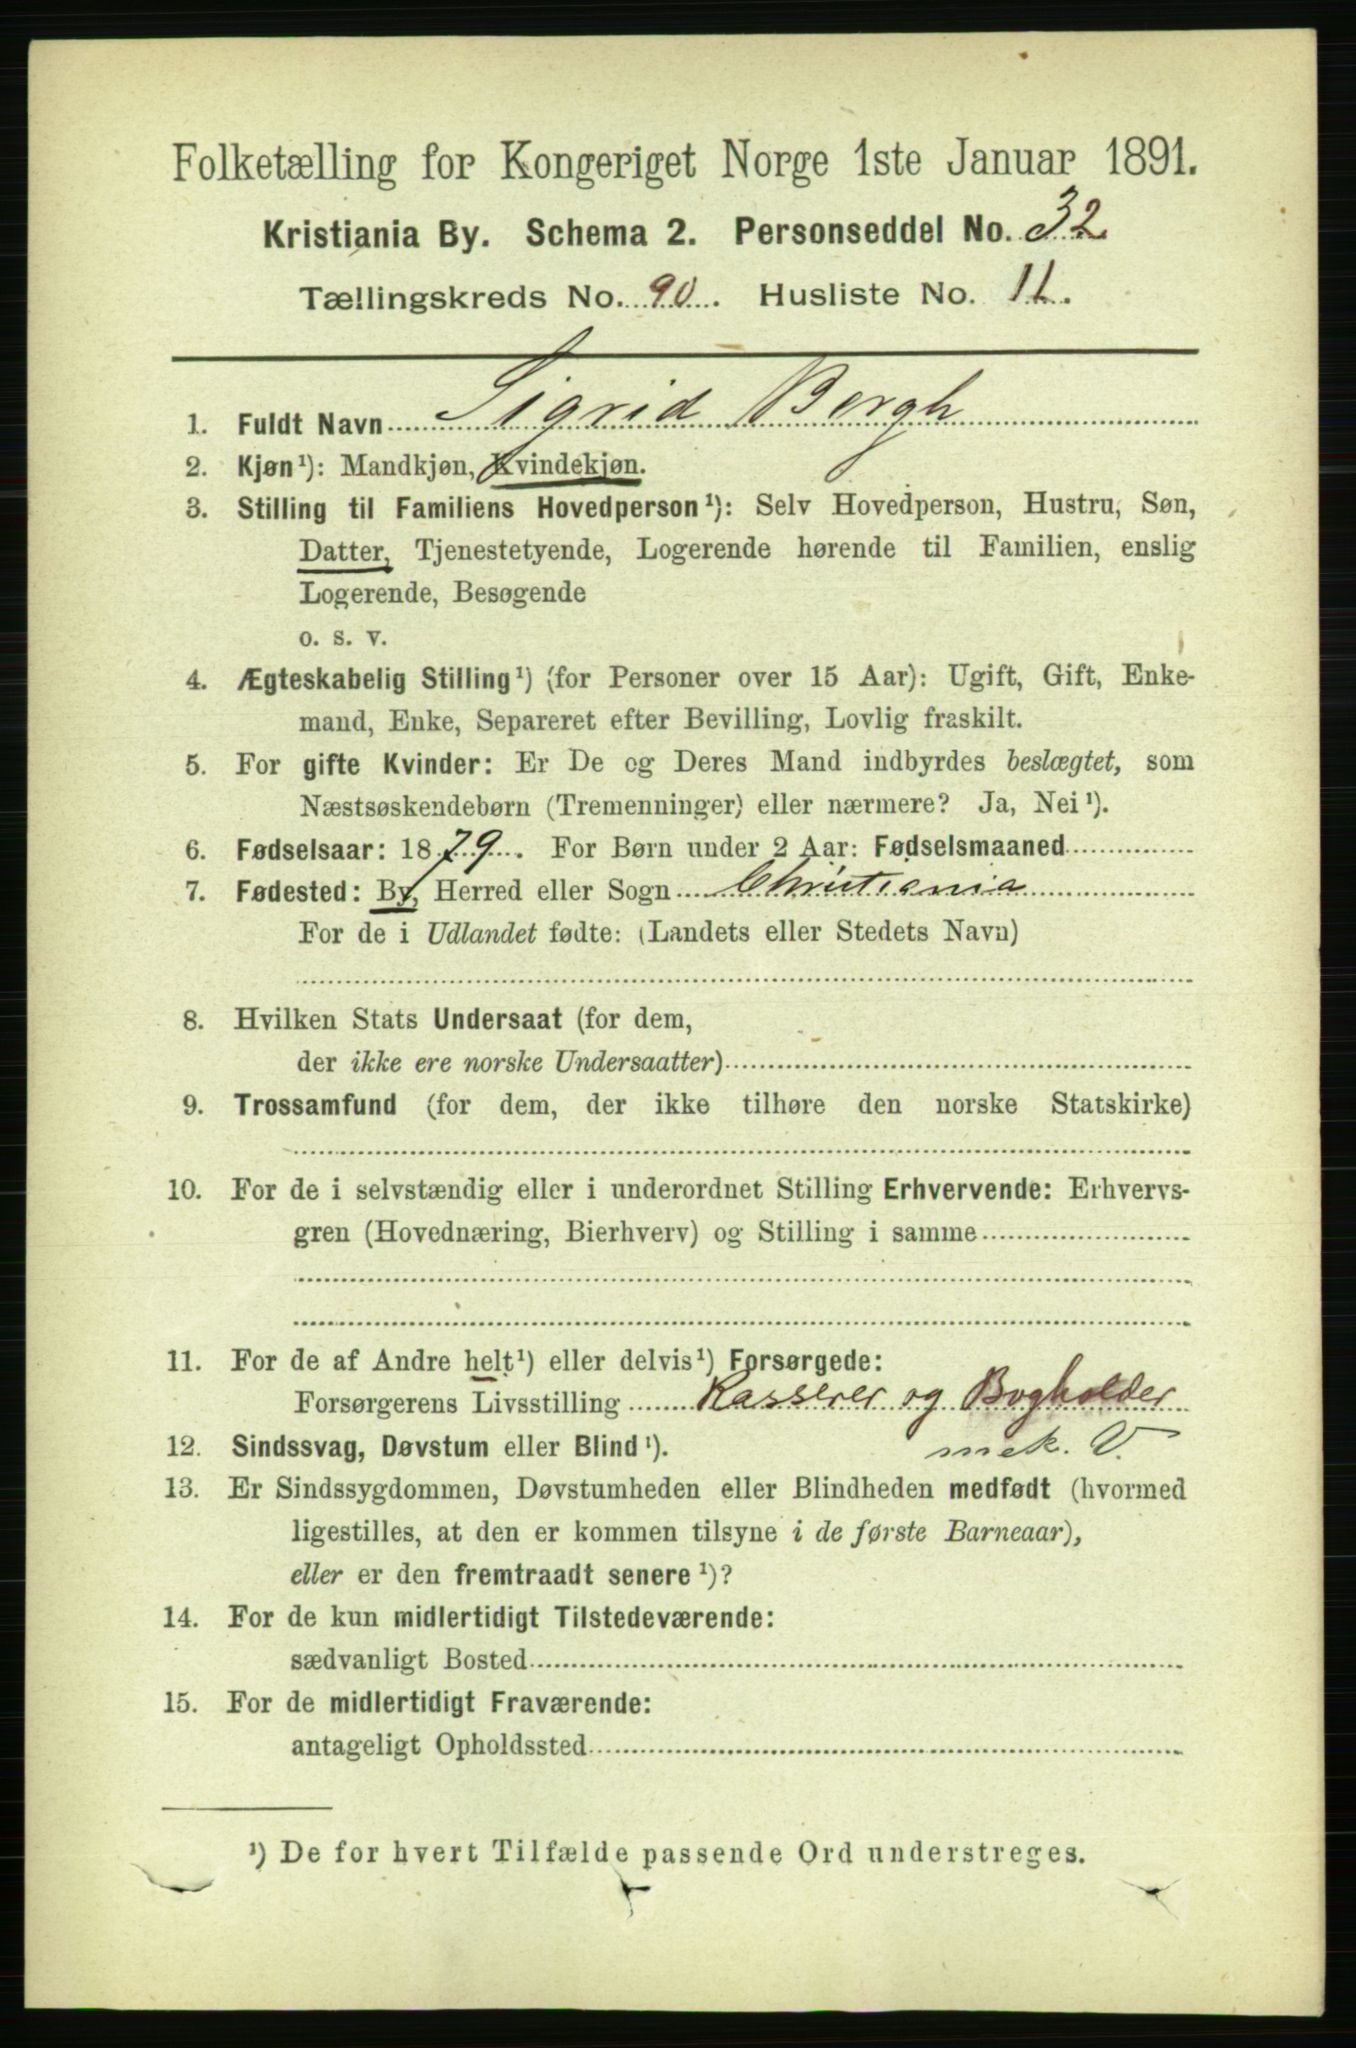 Folketælling for Kongeriget Norge 1ste Januar 1891.
Kristiania By. Schema 2. Personseddel No. 32
Tællingskreds No. 90. Husliste No. 11.
1. Fuldt Navn Sigrid Bergh
2. Kjøn¹): Mandkjøn, Kvindekjøn.
3. Stilling til Familiens Hovedperson¹): Selv Hovedperson, Hustru, Søn,
Datter, Tjenestetyende, Logerende hørende til Familien, enslig
Logerende, Besøgende
o. s. v.
4. Ægteskabelig Stilling¹) (for Personer over 15 Aar): Ugift, Gift, Enke-
mand, Enke, Separeret efter Bevilling, Lovlig fraskilt.
5. For gifte Kvinder: Er De og Deres Mand indbyrdes beslægtet, som
Næstsøskendebørn (Tremenninger) eller nærmere? Ja, Nei¹).
6. Fødselsaar: 1879. For Børn under 2 Aar: Fødselsmaaned
7. Fødested: By, Herred eller Sogn Christiania
For de i Udlandet fødte: (Landets eller Stedets Navn)
8. Hvilken Stats Undersaat (for dem,
der ikke ere norske Undersaatter)
9. Trossamfund (for dem, der ikke tilhøre den norske Statskirke)
10. For de i selvstændig eller i underordnet Stilling Erhvervende: Erhvervs-
gren (Hovednæring, Bierhverv) og Stilling i samme
11. For de af Andre helt¹) eller delvis¹) Forsørgede:
Forsørgerens Livsstilling Kasserer og Bogholder
12. Sindssvag, Døvstum eller Blind¹). mek. V.
13. Er Sindssygdommen, Døvstumheden eller Blindheden medfødt (hvormed
ligestilles, at den er kommen tilsyne i de første Barneaar),
eller er den fremtraadt senere¹)?
14. For de kun midlertidigt Tilstedeværende:
sædvanligt Bosted
15. For de midlertidigt Fraværende:
antageligt Opholdssted
¹) De for hvert Tilfælde passende Ord understreges.